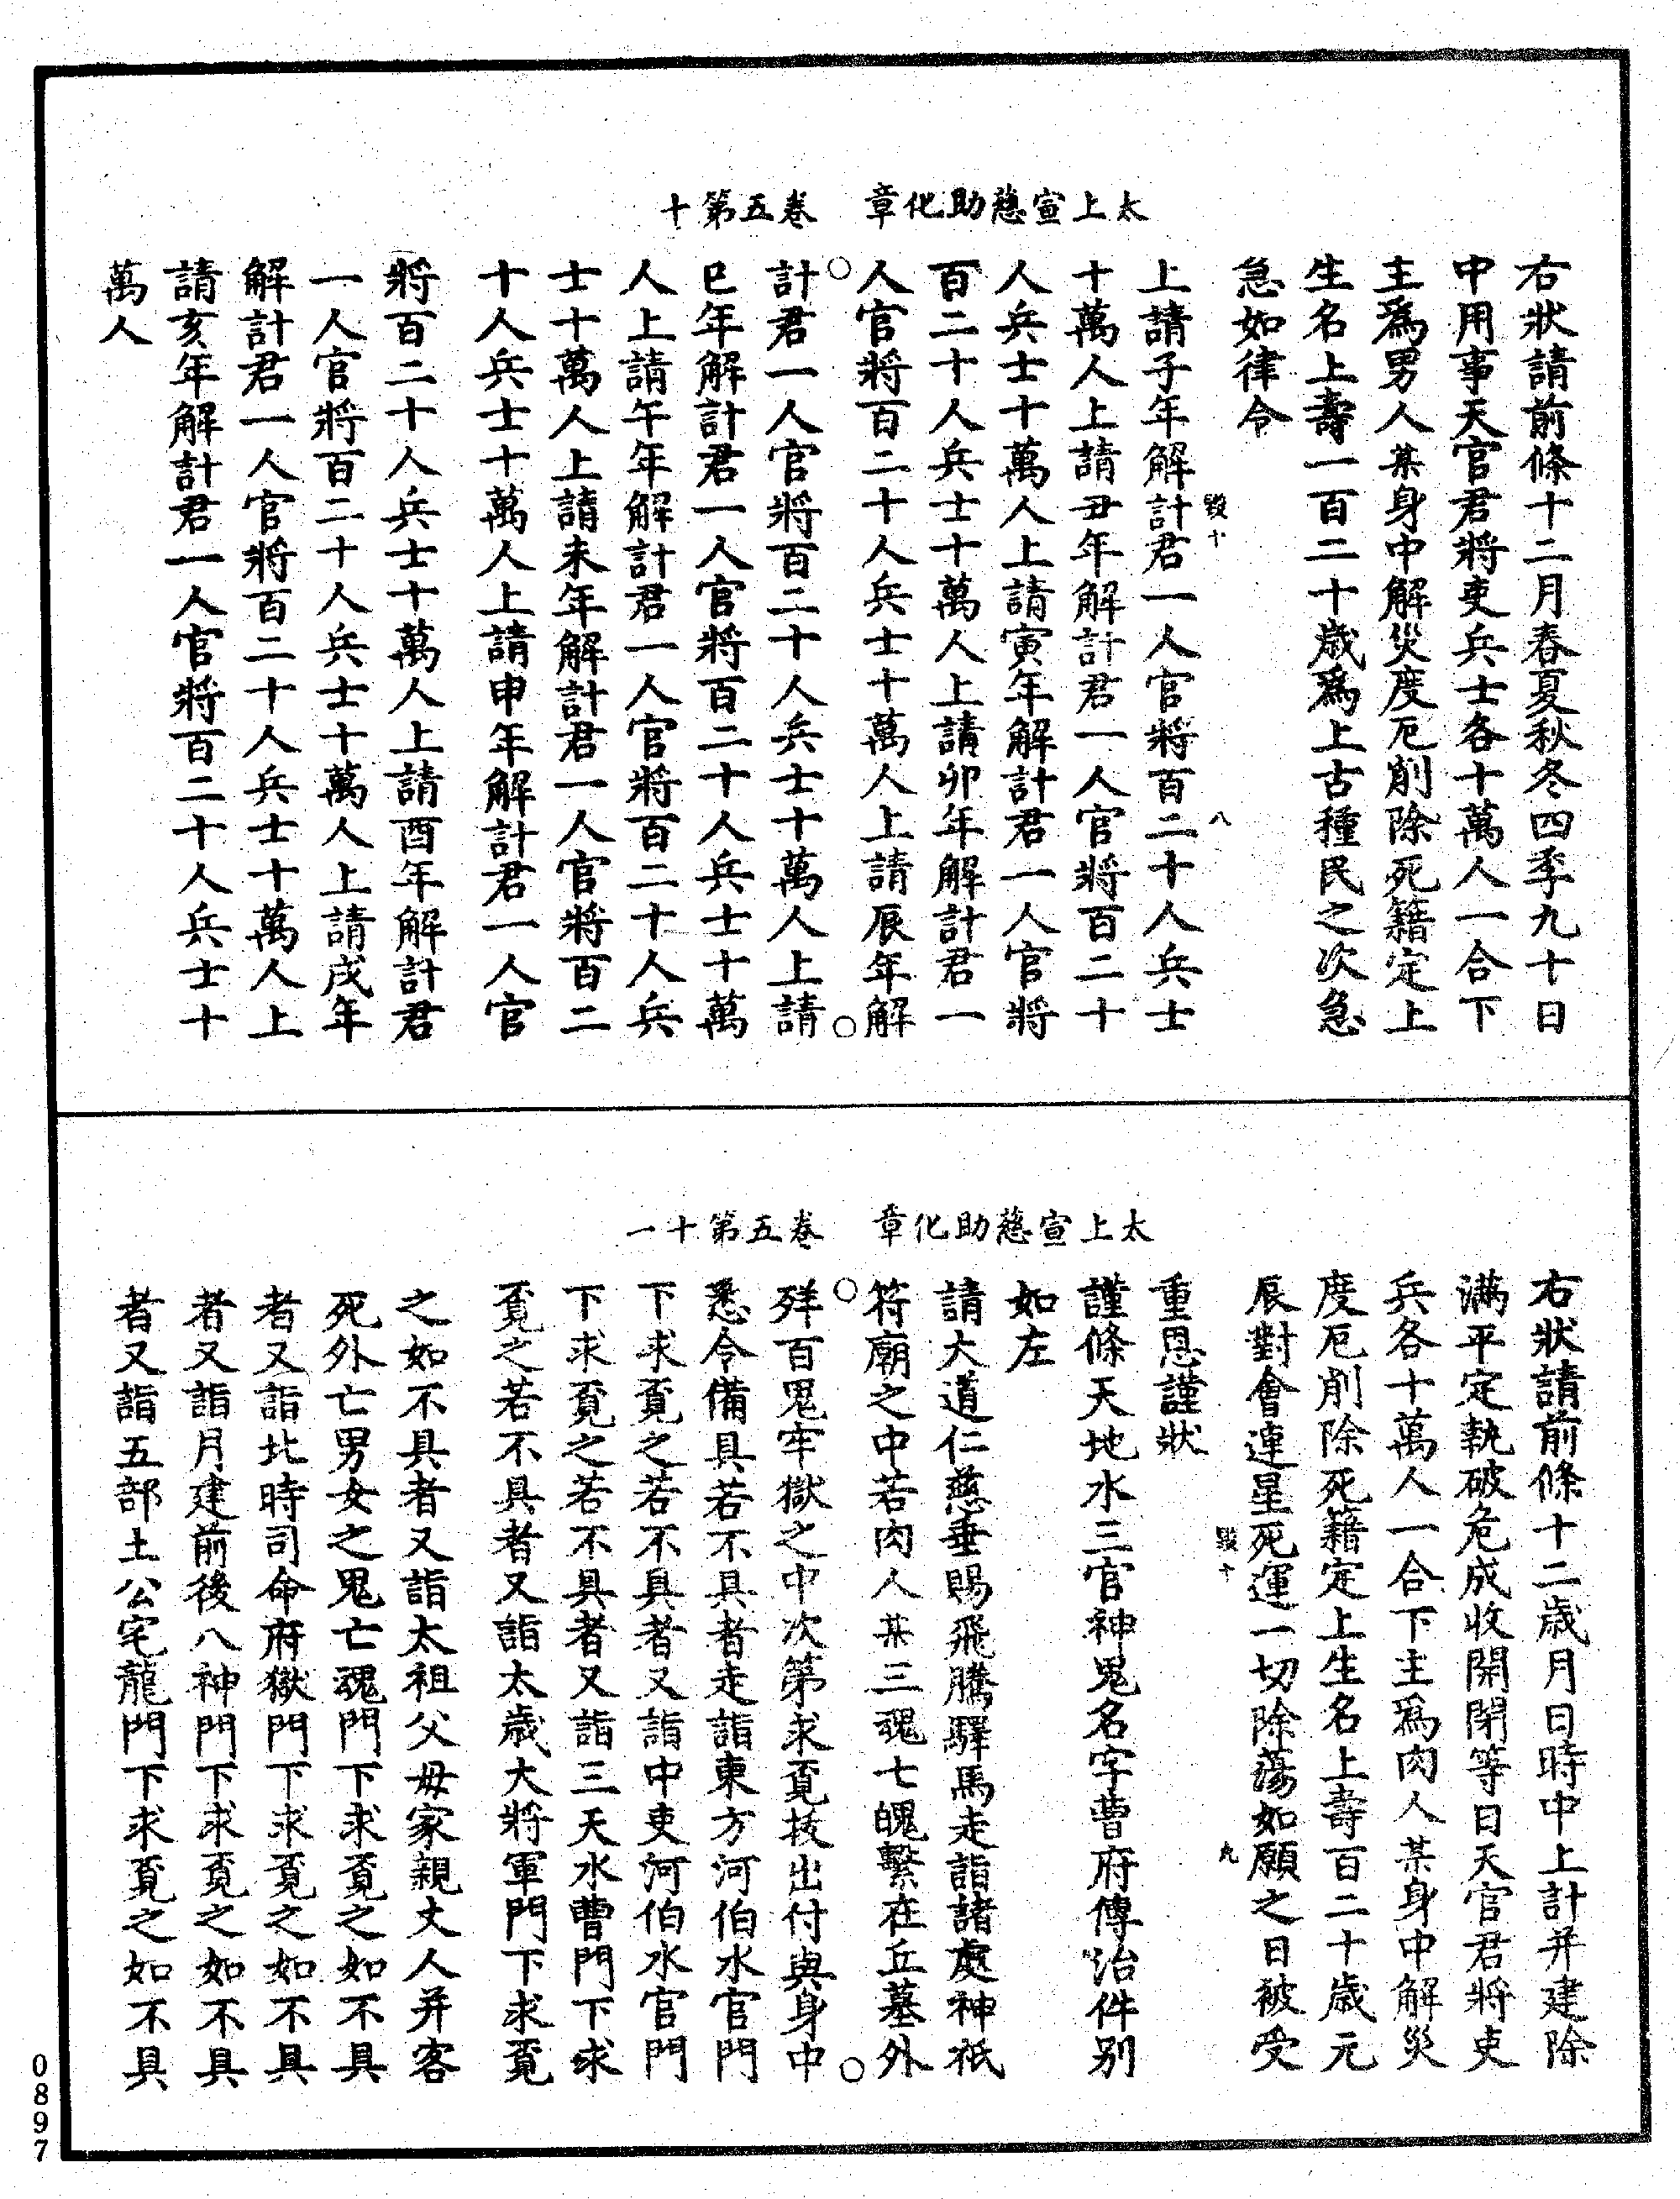 太上宣慈助化章　卷五第十
右狀請前條十二月春夏秋冬四季九十日
中用事天官君將吏兵士各十萬人一合下
主爲男人某身中解災度厄削除死籍定上
生名上壽一百二十歲爲上古種民之次急
急如律令
毀十　八
上請子年解計君一人官將百二十人兵士
十萬人上請丑年解計君一人官將百二十
人兵士十萬人上請寅年解計君一人官將
百二十人兵士十萬人上請卯年解計君一
人官將百二十人兵士十萬人上請辰年解
計君一人官將百二十人兵士十萬人上請
巳年解計君一人官將百二十人兵士十萬
人上請午年解計君一人官將百二十人兵
士十萬人上請未年解計君一人官將百二
十人兵士十萬人上請申年解計君一人官
將百二十人兵士十萬人上請酉年解計君
一人官將百二十人兵士十萬人上請戌年
解計君一人官將百二十人兵士十萬人上
請亥年解計君一人官將百二十人兵士十
萬人
太上宣慈助化章　卷五第十一
右狀請前條十二歲月日時中上計并建除
滿平定執破危成收開閉等日天官君將吏
兵各十萬人一合下主爲肉人某身中解災
度厄削除死籍定上生名上壽百二十歲元
辰對會連星死運一切除蕩如願之日被受
毀十　九
重恩謹狀
謹條天地水三官神鬼名字曹府傳治件别
如左
請大道仁慈垂賜飛騰驛馬走詣諸處神祇
符廟之中若肉人某三魂七魄繫在丘墓外
殃百鬼牢獄之中次第求覔拔出付與身中
悉令備具若不具者走詣東方河伯水官門
下求覔之若不具者又詣中吏河伯水官門
下求覔之若不具者又詣三天水曹門下求
覔之若不具者又詣太歲大將軍門下求覔
之如不具者又詣太祖父母家親丈人并客
死外亡男女之鬼亡魂門下求覔之如不具
者又詣北時司命府獄門下求覔之如不具
者又詣月建前後八神門下求覔之如不具
者又詣五部土公宅龍門下求覔之如不具
0897